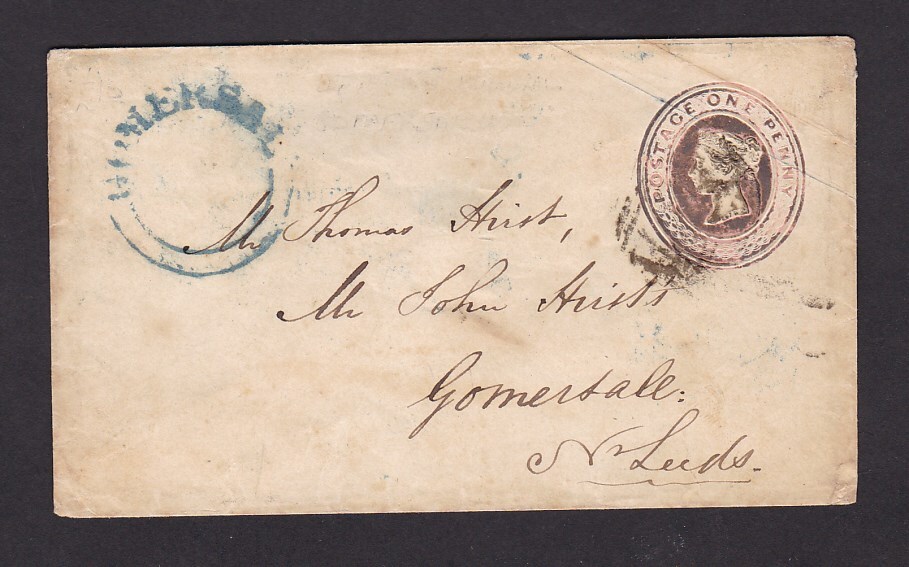 POSTAGE ONE PENNY
Mr Thomas Hirst,
Mr John Hirsts
Gomersale:
Nr Leeds.